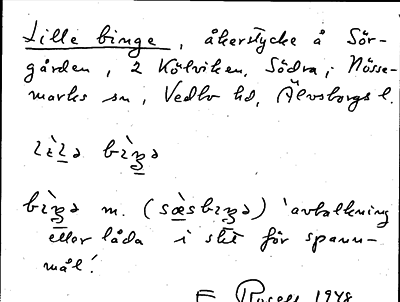 Lille binge, åkerstycke å Sör-
gården, 2 Kölviken, Södra, i Nösse-
marks sn, Vedbo hd, Älvsborgs l.
bìŋə m. (sæ̀sbiŋə) 'avbalkning
eller låda i slikt för spann-
mål'.
1948